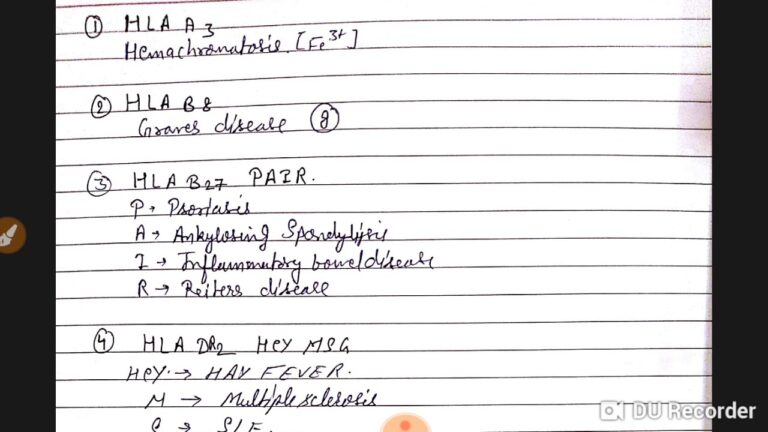 ① HLA A3
Hemachromatosis. [Fe3+]
② HLA B8
Graves disease ⑧
③ HLA B27 PAIR.
P → Psoriasis
A → Ankylosing Spondylisis
I → Inflammutory bowel disease
R → Reiters disease
④ HLA DR2 HEY MSG
HEY. → HAY FEVER.
M → Multiple sclerosis
S → SLE.
DU Recorder